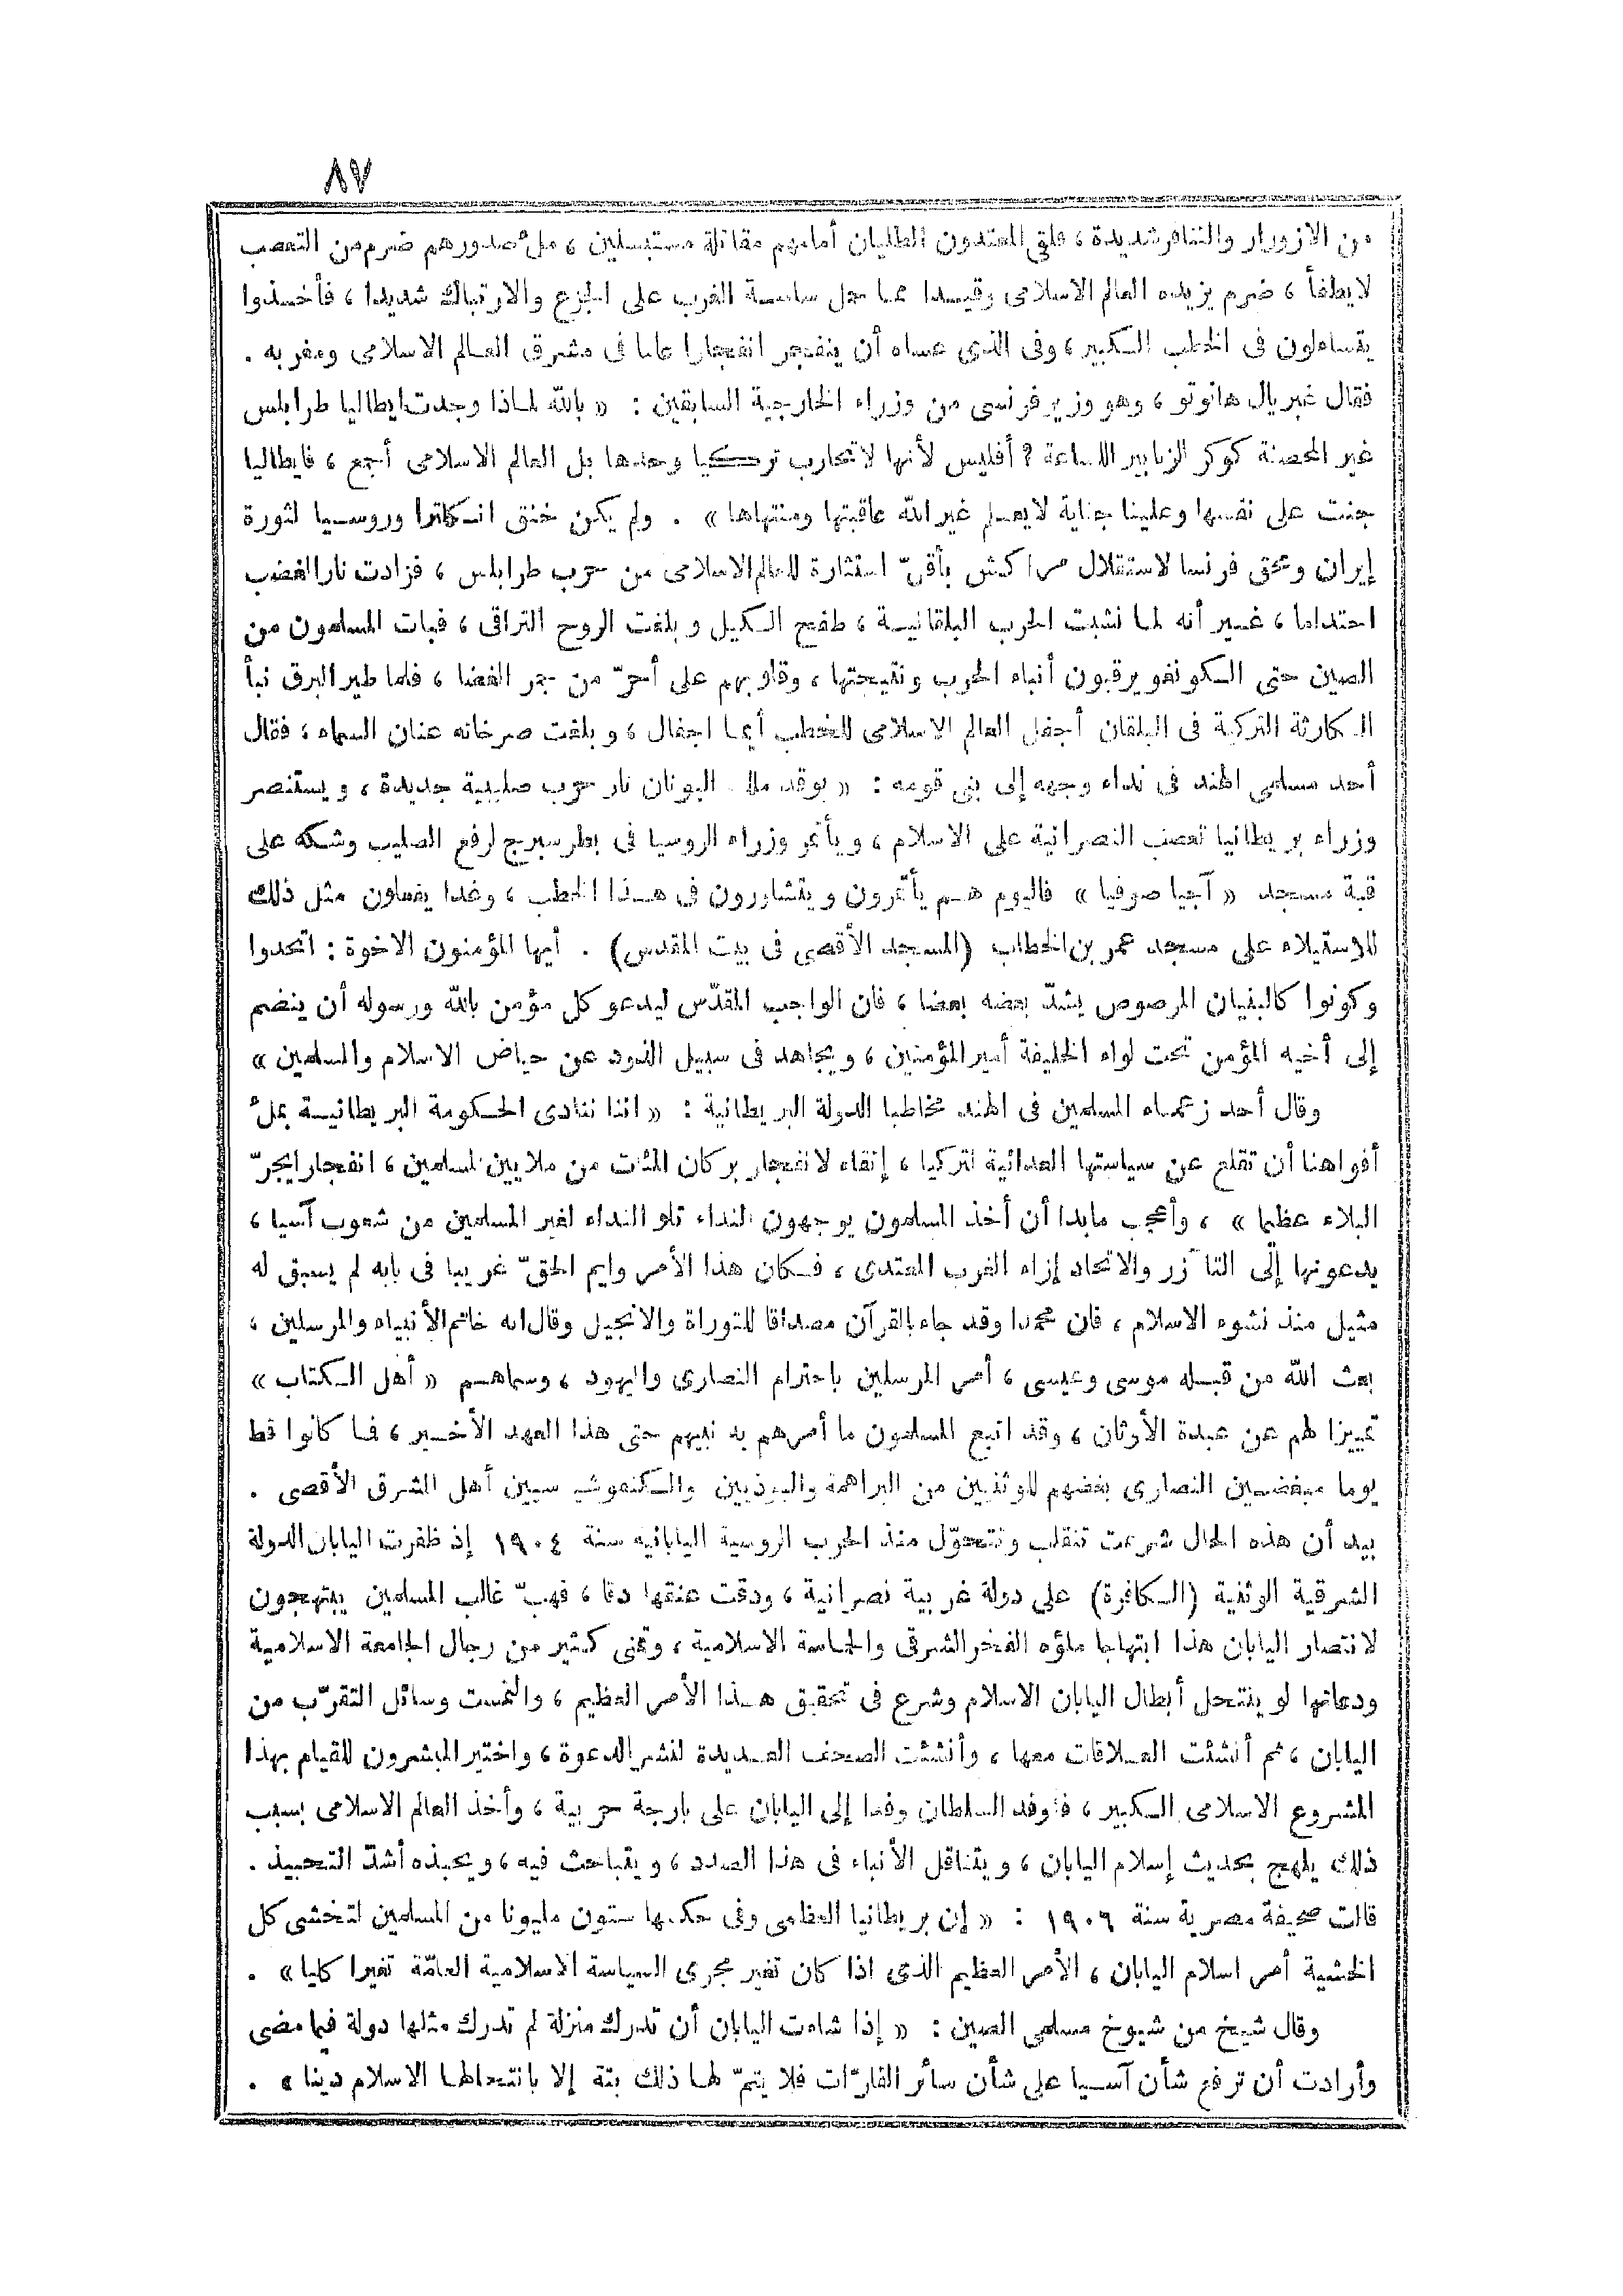 ٨٧
من الازورار والتنافر شديدة ، فلقى المعتدون الطليان أمامهم مقاتلة مستبسلين ، ملء صدورهم ضرم من التعصب
لا يطفأ ، ضرم يزيده العالم الاسلامى وقيدا مما حمل ساسة الغرب على الجزع والارتباك شديدا ، فأخذوا
يتساءلون فى الخطب الكبير ، وفى الذى عساه أن ينفجر انفجارا عاما فى مشرق العالم الاسلامى ومغربه .
فقال غبريال هانوتو ، وهو وزير فرنسى من وزراء الخارجية السابقين : « بالله لماذا وجدت ايطاليا طرابلس
غير المحصنة كوكر الزنابير اللساعة ? أفليس لأنها لا تحارب تركيا وحدها بل العالم الاسلامى أجمع ، فايطاليا
جنت على نفسها وعلينا جناية لا يعلم غير الله عاقبتها ومنتهاها » . ولم يكن خنق انكلترا وروسيا لثورة
إيران ومحق فرنسا لاستقلال مراكش بأقلّ استثارة للعالم الاسلامى من حرب طرابلس ، فزادت نار الغضب
احتداما ، غير أنه لما نشبت الحرب البلقانية ، طفح الكيل وبلغت الروح التراقى ، فبات المسلمون من
الصين حتى الكونغو يرقبون أنباء الحرب ونتيجتها ، وقلوبهم على أحرّ من جمر الغضا ، فلما طير البرق نبأ
الكارثة التركية فى البلقان أجفل العالم الاسلامى للخطب أيما اجفال ، وبلغت صرخاته عنان السماء ، فقال
أحد مسلمى الهند فى نداء وجهه إلى بنى قومه : « يوقد اليونان نار حرب صليبية جديدة ، ويستنصر
وزراء بريطانيا تعصب النصرانية على الاسلام ، ويأتمر وزراء الروسيا فى بطرسبرج لرفع الصليب وشكه على
قبة مسجد « آجيا صوفيا » فاليوم هم يأتمرون ويتشاورون فى هذا الخطب ، وغدا يفعلون مثل ذلك
للاستيلاء على مسجد عمر بن الخطاب (المسجد الأقصى فى بيت المقدس) . أيها المؤمنون الاخوة : اتحدوا
وكونوا كالبنيان المرصوص يشدّ بعضه بعضا ، فان الواجب المقدّس ليدعو كل مؤمن بالله ورسوله أن ينضم
إلى أخيه المؤمن تحت لواء الخليفة أمير المؤمنين ، ويجاهد فى سبيل الذود عن حياض الاسلام والمسلمين »
وقال أحد زعماء المسلمين فى الهند مخاطبا الدولة البريطانية : « اننا ننادى الحكومة البريطانية بملء
أفواهنا أن تقلع عن سياستها العدائية لتركيا ، إتقاء لانفجار بركان المئات من ملايين المسلمين ، انفجارا يجرّ
البلاء عظيما » ، وأعجب مابدا أن أخذ المسلمون يوجهون النداء تلو النداء لغير المسلمين من شعوب آسيا ،
يدعونها إلى التآزر والاتحاد إزاء الغرب المعتدى ، فكان هذا الأمر وايم الحقّ غريبا فى بابه لم يسبق له
مثيل منذ نشوء الاسلام ، فان محمدا وقد جاء بالقرآن مصداقا للتوراة والانجيل وقال انه خاتم الأنبياء والمرسلين ،
بعث الله من قبله موسى وعيسى ، أمر المرسلين باحترام النصارى واليهود ، وسماهم « أهل الكتاب »
تمييزا لهم عن عبدة الأوثان ، وقد اتبع المسلمون ما أمرهم به نبيهم حتى هذا العهد الأخير ، فما كانوا قط
يوما مبغضين النصارى بغضهم للوثنيين من البراهمة والبوذيين والكنفوشيوسيين أهل الشرق الأقصى .
بيد أن هذه الحال شرعت تنقلب وتتحوّل منذ الحرب الروسية اليابانيه سنة ١٩٠٤ إذ ظفرت اليابان الدولة
الشرقية الوثنية (الكافرة) على دولة غربية نصرانية ، ودقت عنقها دقا ، فهبّ غالب المسلمين يبتهجون
لانتصار اليابان هذا ابتهاجا ملؤه الفخر الشرقى والحماسة الاسلامية ، وتمنى كثير من رجال الجامعة الاسلامية
ودعاتها لو ينتحل أبطال اليابان الاسلام وشرع فى تحقيق هذا الأمر العظيم ، والتمست وسائل التقرّب من
اليابان ، ثم أنشئت العلاقات معها ، وأنشئت الصحف العديدة لنشر الدعوة ، واختير المبشرون للقيام بهذا
المشروع الاسلامى الكبير ، فأوفد السلطان وفدا إلى اليابان على بارجة حربية ، وأخذ العالم الاسلامى بسبب
ذلك يلهج بحديث إسلام اليابان ، ويتناقل الأنباء فى هذا الصدد ، ويتباحث فيه ، ويحبذه أشدّ التحبيذ .
قالت صحيفة مصرية سنة ١٩٠٦ : « إن بريطانيا العظمى وفى حكمها ستون مليونا من المسلمين لتخشى كل
الخشية أمر اسلام اليابان ، الأمر العظيم الذى اذا كان تغير مجرى السياسة الاسلامية العامّة تغيرا كليا » .
وقال شيخ من شيوخ مسلمى الصين : « إذا شاءت اليابان أن تدرك منزلة لم تدرك مثلها دولة فيما مضى
وأرادت أن ترفع شأن آسيا على شأن سائر القارّات فلا يتمّ لها ذلك بتة إلا بانتحالها الاسلام دينا » .